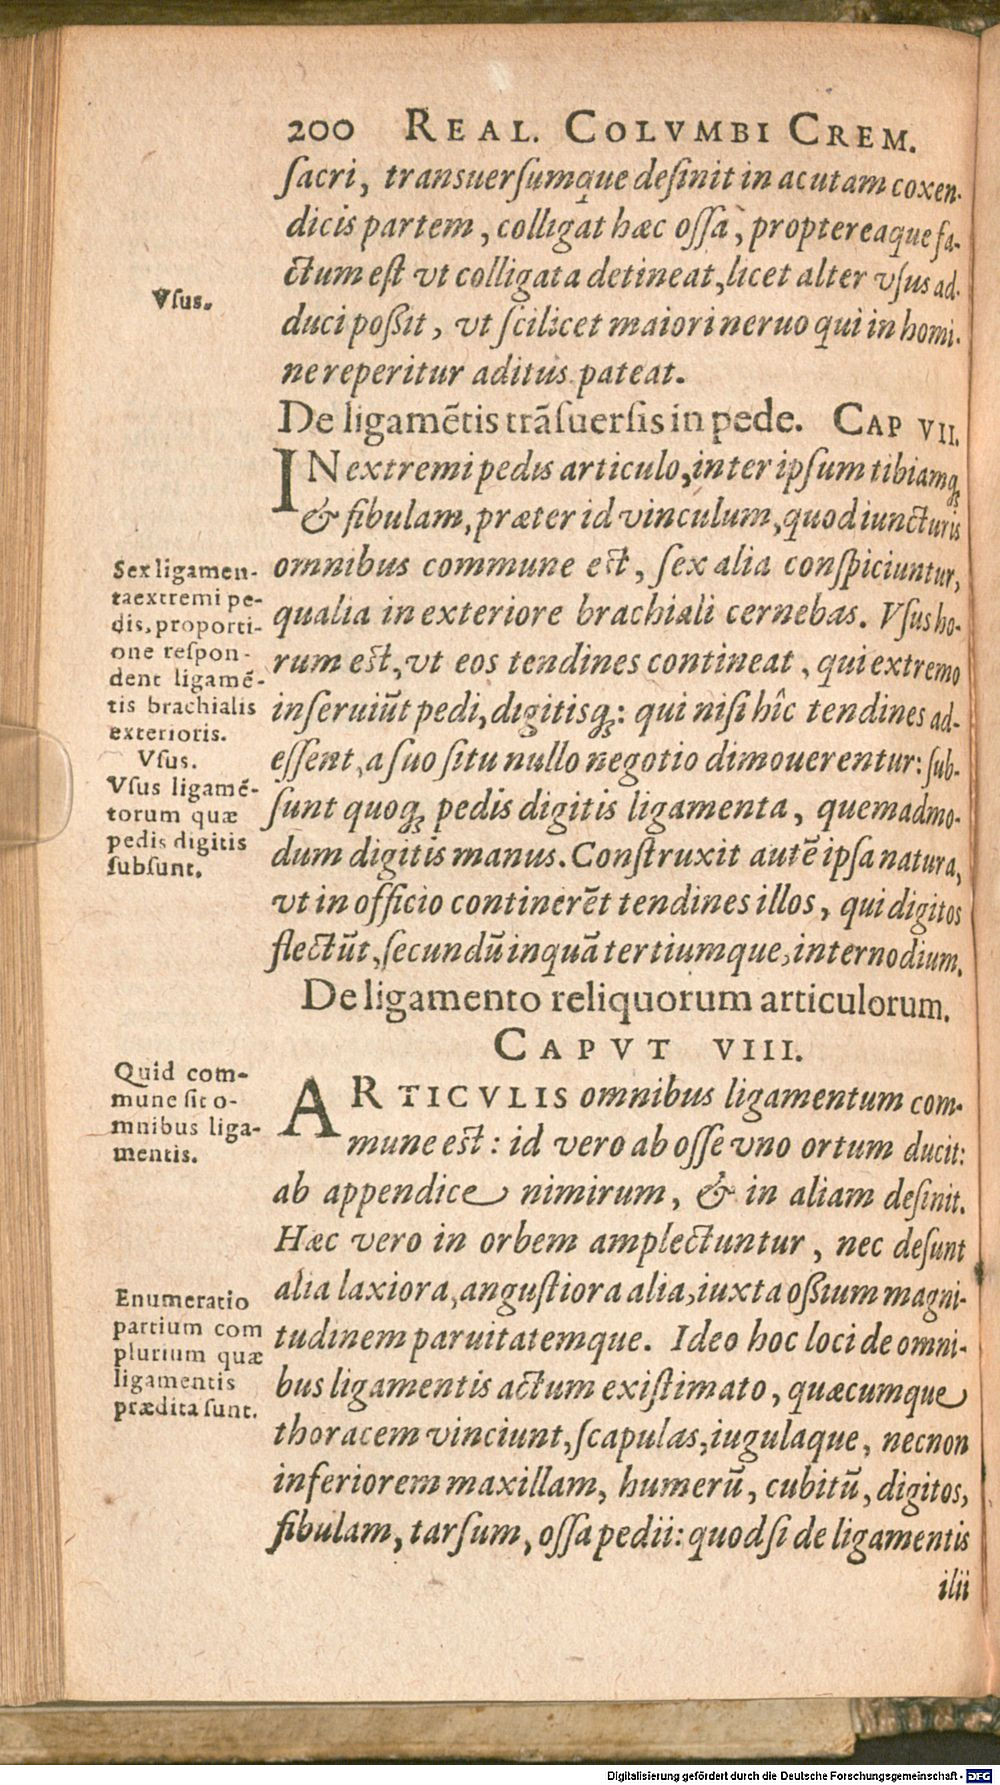 200 REAL. COLVMBI CREM.
ſacri, transuerſumque deſinit in acutam coxen-
dicis partem, colligat hæc oſſa, proptereaque fa-
ctum eſt vt colligata detineat, licet alter vſus ad-
duci poſſit, vt ſcilicet maiori neruo qui in homi-
ne reperitur aditus pateat.
Vſus.
De ligamētis trāſuerſis in pede. CAP VII.
IN extremi pedis articulo, inter ipſum tibiamq;
& fibulam, præter id vinculum, quod iuncturis
omnibus commune eſt, ſex alia conſpiciuntur,
qualia in exteriore brachiali cernebas. Vſus ho-
rum eſt, vt eos tendines contineat, qui extremo
inſeruiūt pedi, digitisq;: qui niſi hîc tendines ad-
eſſent, a ſuo ſitu nullo negotio dimouerentur: ſub-
ſunt quoq; pedis digitis ligamenta, quemadmo-
dum digitis manus. Conſtruxit autē ipſa natura,
vt in officio continerēt tendines illos, qui digitos
flectūt, ſecundū inquā tertiumque, internodium.
Sex ligamen-
ta extremi pe-
dis, proporti-
one reſpon-
dent ligamē-
tis brachialis
exterioris.
Vſus.
Vſus ligamē-
torum quæ
pedis digitis
ſubſunt.
De ligamento reliquorum articulorum.
CAPVT VIII.
ARTICVLIS omnibus ligamentum com-
mune eſt: id vero ab oſſe vno ortum ducit:
ab appendice nimirum, & in aliam deſinit.
Hæc vero in orbem amplectuntur, nec deſunt
alia laxiora, anguſtiora alia, iuxta oſſium magni-
tudinem paruitatemque. Ideo hoc loci de omni-
bus ligamentis actum exiſtimato, quæcumque
thoracem vinciunt, ſcapulas, iugulaque, necnon
inferiorem maxillam, humerū, cubitū, digitos,
fibulam, tarſum, oſſa pedii: quod ſi de ligamentis
ilii
Quid com-
mune ſit o-
mnibus liga-
mentis.
Enumeratio
partium com
plurium quæ
ligamentis
prædita ſunt.
Digitalisierung gefördert durch die Deutsche Forschungsgemeinschaft - DFG